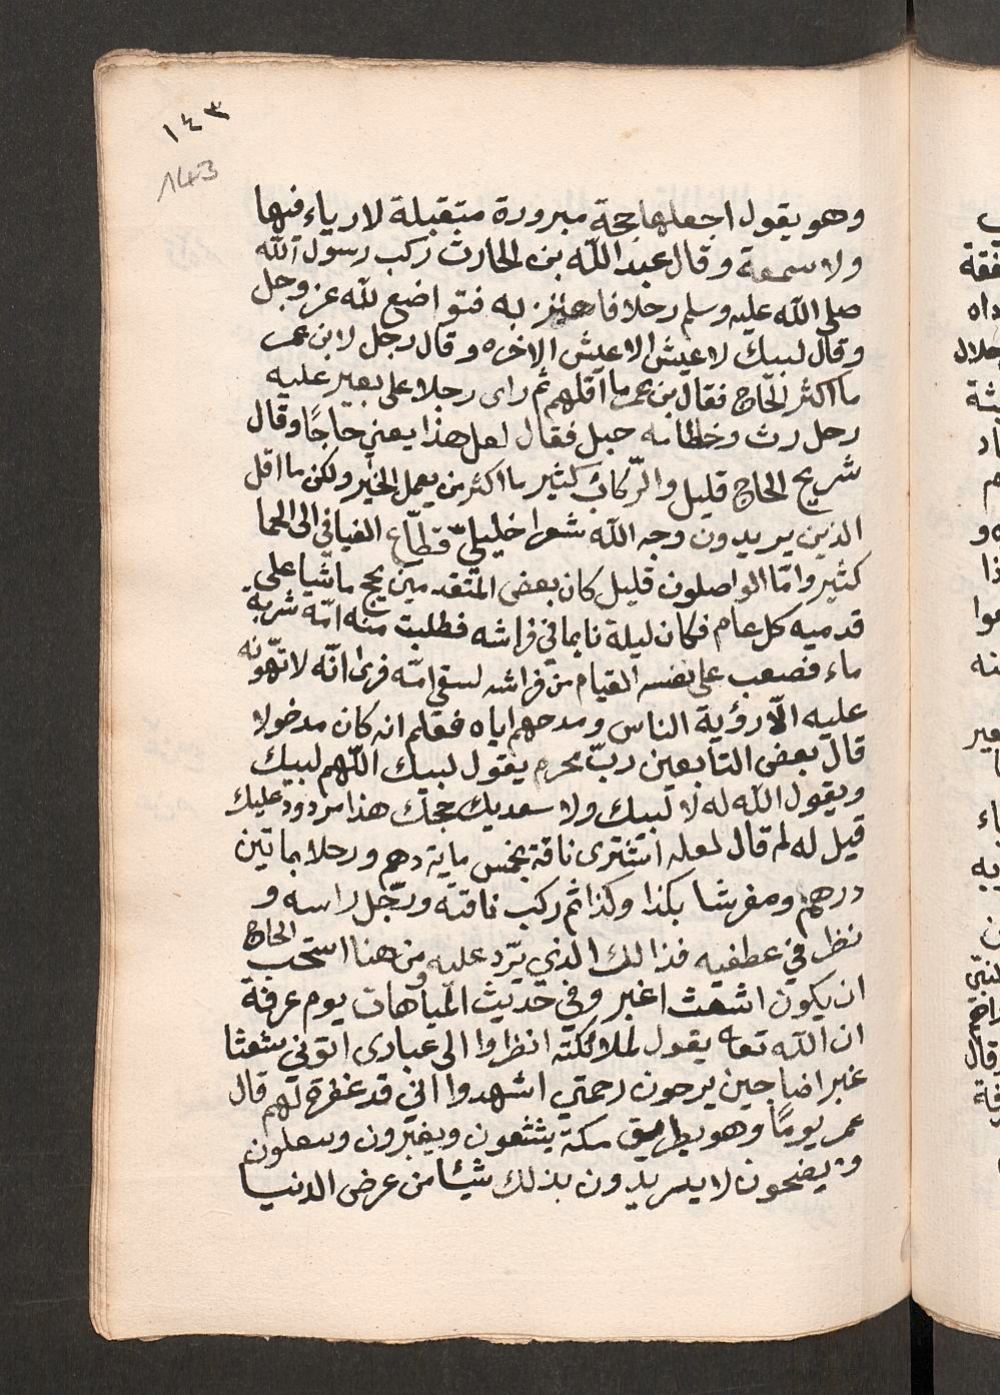 ١٤٣
143
وهو يقول اجعلها حجة مبرورة متقبلة لا رياء فيها
ولا سمعة وقال عبد الله بن الحارث ركب رسول الله
صلى الله عليه وسلم رحلا فاهتز به فتواضع لله عز وجل
وقال لبيك لا عيش الا عيش الاخره وقال رجل لابن عمر
ما اكثر الحاج فقال بن عمر ما اقلهم ثم راى رجلا على بعير عليه
رحل رث وخطامه حبل فقال لعل هذا يعني حاجًا وقال
شريح الحاج قليل والركائب كثير ما اكثر من يعمل الخير ولكن ما اقل
الذين يريدون وجه الله شعرا خليليّ قطّاع الفيافي الى الحما
كثير وامّا الواصلون قليل كان بعض المتقدمين يحج ماشيا على
قدميه كل عام فكان ليلة نايما في فراشه فطلبت منه امّه شربة
ماء فصعب على نفسه القيام من فراشه لسقي امّه فرى انّه لا تهوّنه
عليه الّا رؤية الناس ومدحهم اياه فعلم انه كان مدخولا
قال بعض التابعين ربّ محرم يقول لبيك اللّهم لبيك
ويقول الله له لا لبيك ولا سعديك حجك هذا مردود عليك
قيل له لم قال لعله اشترى ناقة بخمس ماية درهم ورحلا بماتين
درهم ومفرشا بكذا وكذا ثم ركب ناقته ورجّل راسه و
نظر في عطفيه فذالك الذي يرّد عليه ومن هنا استحب الحاج
ان يكون اشعث اغبر وفي حديث المباهات يوم عرفة
ان الله تعا يقول لملائكته انظروا الى عبادى اتوني شعثا
غبرا ضاجين يرجون رحمتي اشهدوا اني قد غفرة لهم قال
عمر يومًا وهو بطريق مكة يشعثون ويغبرون
ويضحون لا يريدون بذلك شيئا من عرض الدنيا